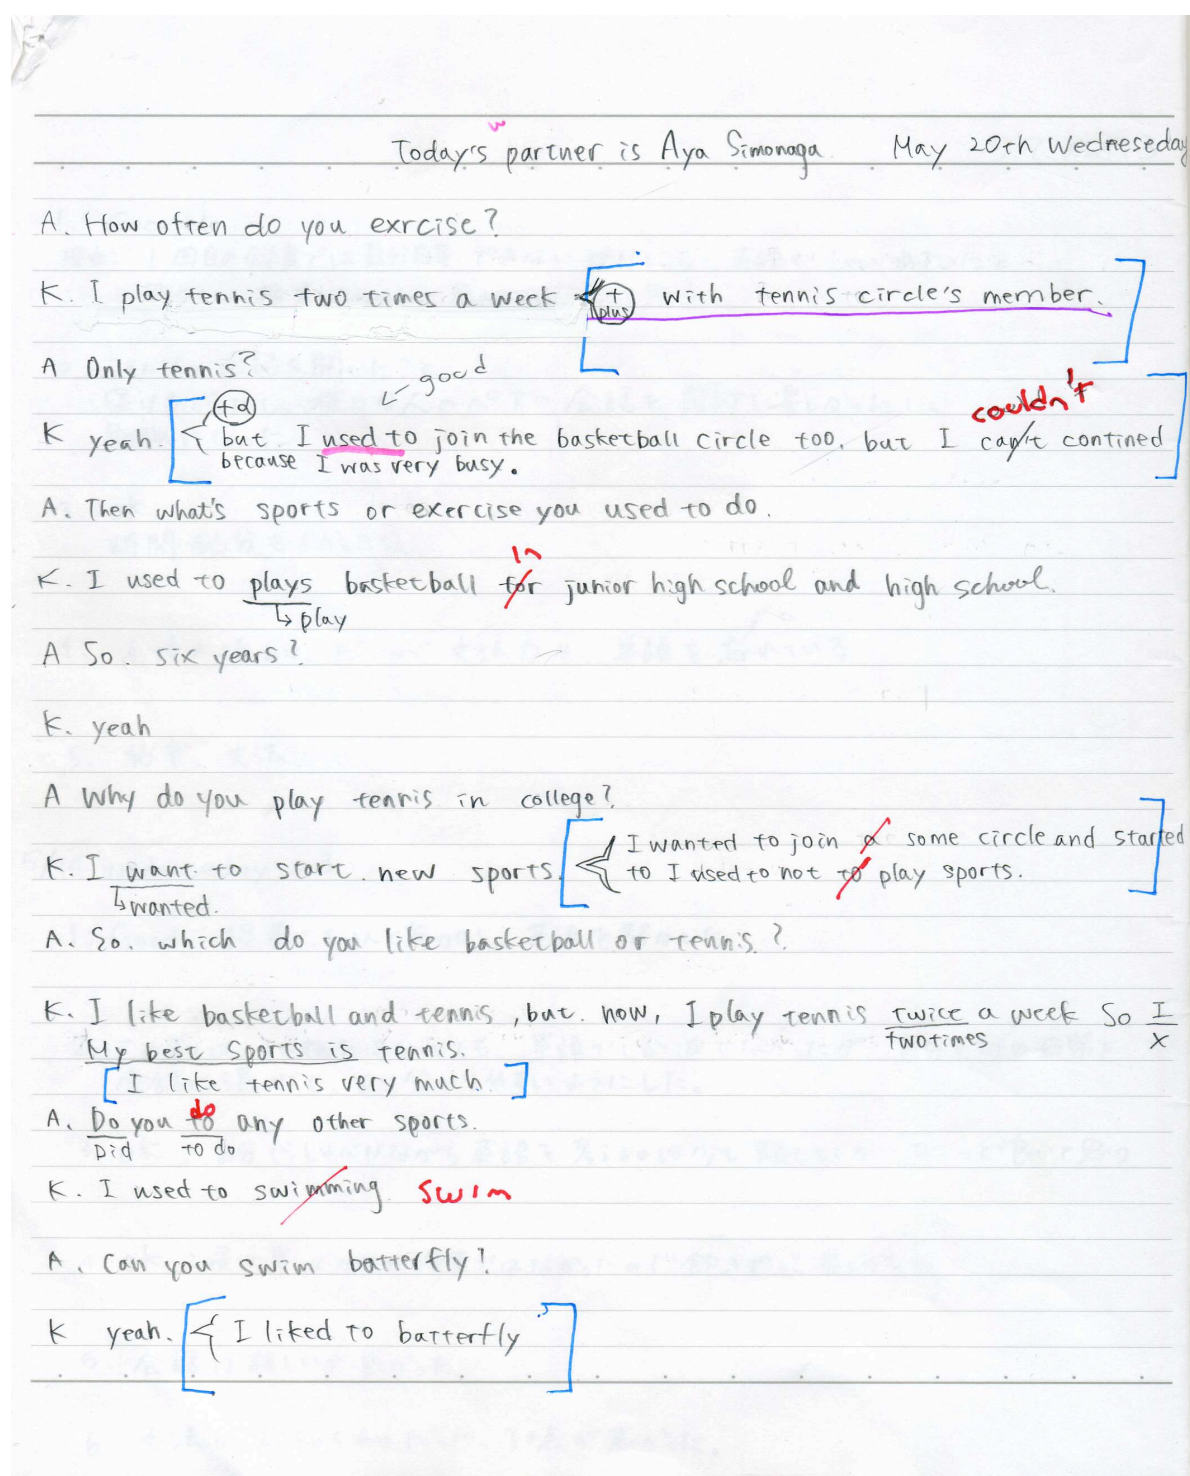 Today's partner is Aya Simonaga May 20th Wedneseday
A. How often do you exrcise?
K. I play tennis two times a week + plus with tennis circle's member.
A Only tennis?
good
couldn't
K yeah. +α but I used to join the basketball circle too, but I can't contined
because I was very busy.
A. Then what's sports or exercise you used to do.
in
K. I used to plays basketball for junior high school and high school.
play
A So. six years?
K. yeah
A Why do you play tennis in college?
I wanted to join a some circle and started
K. I want to start new sports. to I used to not to play sports.
wanted.
A. So. which do you like basketball or tennis?
K. I like basketball and tennis, but now, I play tennis twice a week So I
two times x
My best sports is tennis.
I like tennis very much.
do
A. Do you to any other sports.
Did to do
K. I used to swimming swim
A. Can you swim batterfly?
K yeah. I liked to batterfly